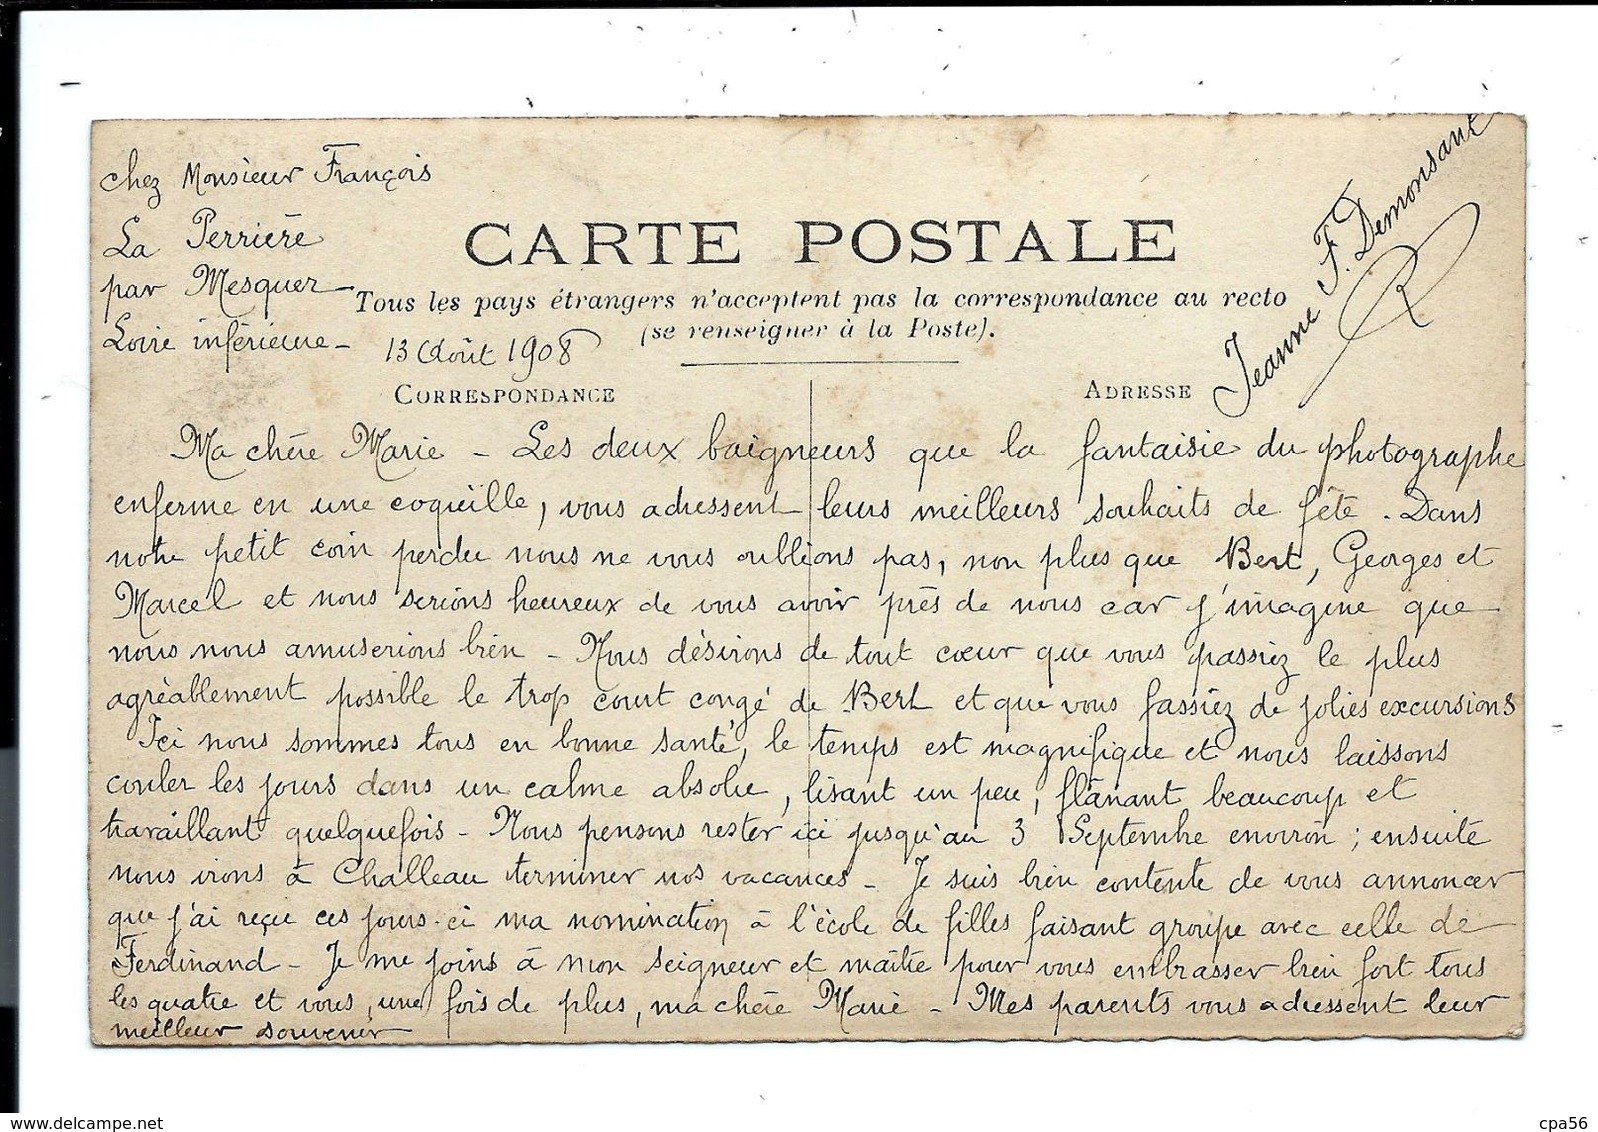 chez Monsieur François
La Perrière
par Mesquer
Loire inférieure -
13 Août 1908
CARTE POSTALE
Tous les pays étrangers n'acceptent pas la correspondance au recto
(se renseigner à la Poste).
CORRESPONDANCE
ADRESSE
Jeanne F. Demonsant
Ma chère Marie - Les deux baigneurs que la fantaisie du photographe
enferme en une coquille, vous adressent leurs meilleurs souhaits de fête. Dans
notre petit coin perdu nous ne vous oublions pas, non plus que Bert, Georges et
Marcel et nous serions heureux de vous avoir près de nous car j'imagine que
nous nous amuserions bien - Nous désirons de tout cœur que vous passiez le plus
agréablement possible le trop court congé de Bert et que vous fassiez de jolies excursions
Ici nous sommes tous en bonne santé, le temps est magnifique et nous laissons
couler les jours dans un calme absolu, lisant un peu, flânant beaucoup et
travaillant quelquefois - Nous pensons rester ici jusqu'au 3 Septembre environ ; ensuite
nous irons à Challeau terminer nos vacances - Je suis bien contente de vous annoncer
que j'ai reçu ces jours-ci ma nomination à l'école de filles faisant groupe avec celle de
Ferdinand - Je me joins à mon seigneur et maître pour vous embrasser bien fort tous
les quatre et vous, une fois de plus, ma chère Marie - Mes parents vous adressent leur
meilleur souvenir
cpa56